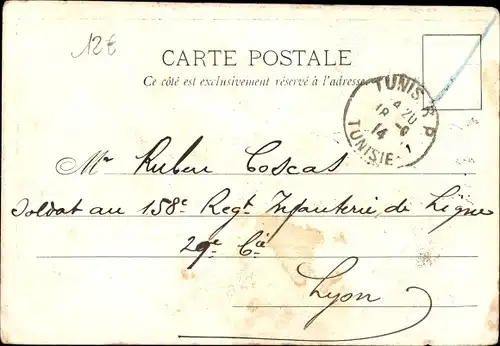 12€
CARTE POSTALE
Ce côté est exclusivement réservé à l'adresse
TUNIS R P
4 20
18 -6
14
TUNISIE
Mr Ruben Coscas
Soldat au 158e Regt Infanterie de Ligne
29e Cie
Lyon